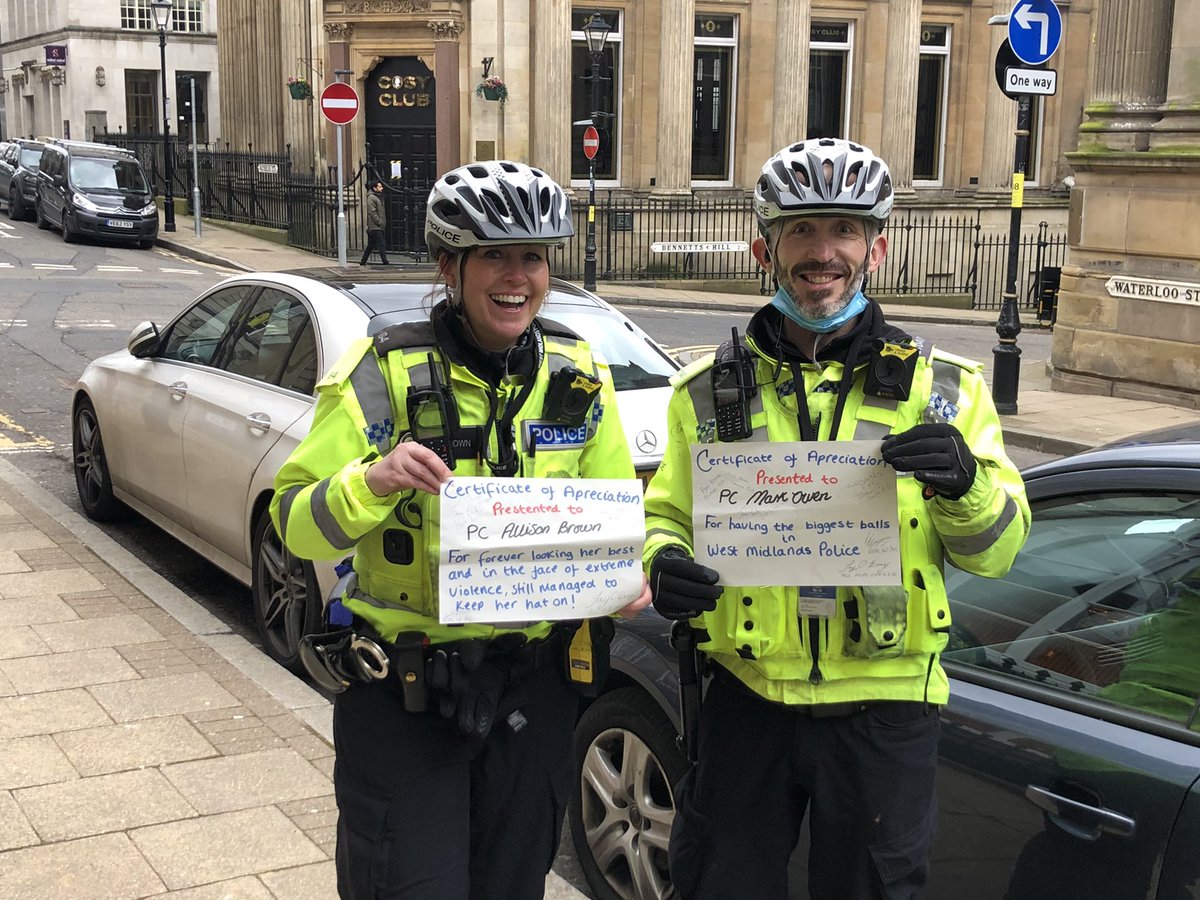 COSY
CLUB
One way
BENNETTS HILL
WATERLOO ST
POLICE
84
OWN
POLICE
Certificate of Apreciation
Prestented to
PC Allison Brown
For forever looking her best
and in the face of extreme
violence, still managed to
keep her hat on!
Certificate of Apreciation
Presented to
PC Mark Owen
For having the biggest balls in
West Midlands Police